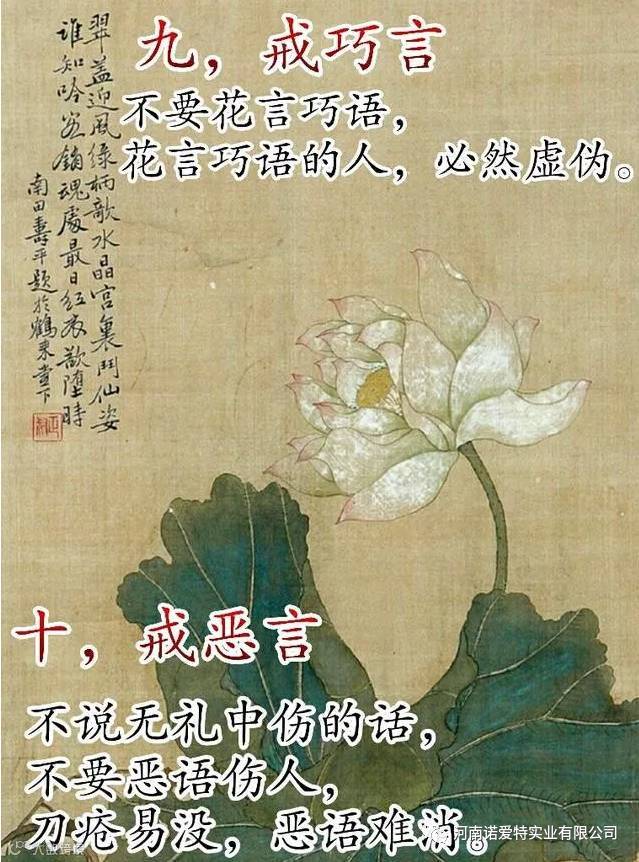 九，戒巧言
不要花言巧语，
花言巧语的人，必然虚伪。
翠盖迎風緑柄欹水晶宫裏鬥仙姿
誰知吟客銷魂處最是紅衣欲墮時
南田壽平題於鶴來堂下
十，戒恶言
不说无礼中伤的话，
不要恶语伤人，
刀疮易没，恶语难消。
河南诺爱特实业有限公司